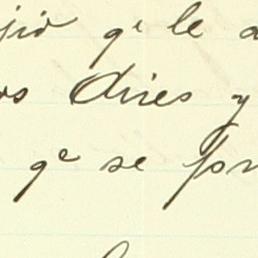 jió qe le a
os Aires y
qe se for